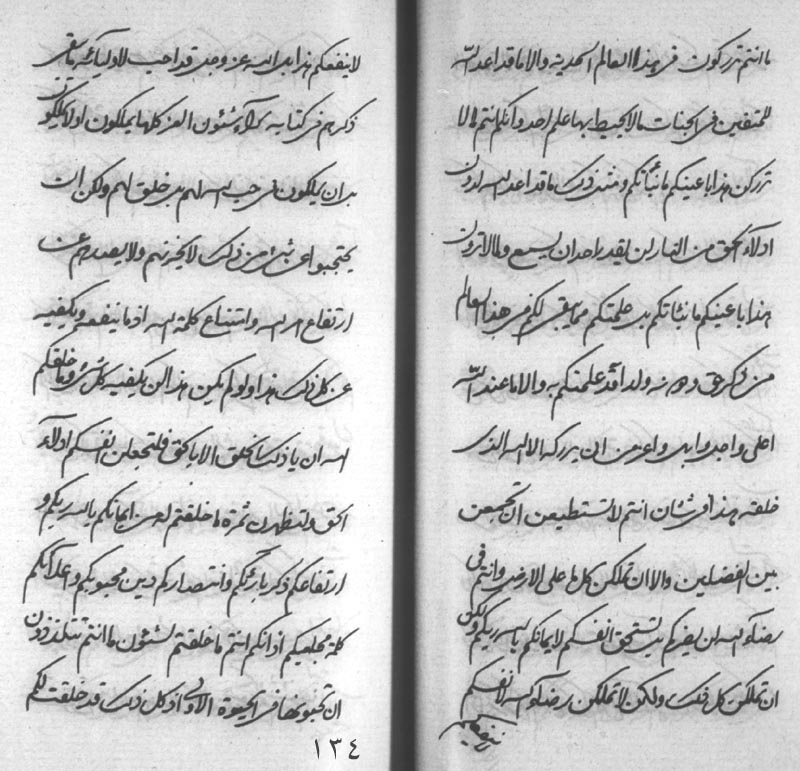 ما انتم تدركون في هذا العالم والا ما قد اعد الله
للمتقين في الجنات ما لا يحيط بها علم احد وأنكم انتم لا
تدركن هذا باعينكم ما نبأتكم ومثل ذلك ما قد اعد الله لدون
ادلاء الحق من النار لن يقدر احد ان يسمع ولما لا ترون
هذا باعينكم ما نبأتكم بل علمتكم مما يبقى لكم في هذا العالم
من ذكر حق ودونه علمتكم به والا ما عند الله
اعلى واجل وابهى واعز من ان يدركه الا الله الذى
خلقه هذا في شان انتم لا تستطيعن ان تجمعن
بين الفضلين والا ان تملكن كل ما على الارض وانتم في
رضاء الله لن يضركم بل تستحق انفسكم لايمانكم بالله ربكم ولكن
ان تملكن كل ذلك ولكن لا تملكن رضاء الله لانفسكم
لا ينفعكم هذا بل الله عز وجل قد احب لاوليائه ما يبقى
ذكرهم في كتابه شئون العز كلها يملكون او لا يملكون
بل ان يملكون في حب الله لهم بل خلق لهم ولكن ان
يحتجبوا عن شئ من ذلك لا يحزنهم ولا يصدهم عن
ارتفاع امر الله وامتناع كلمة الله اذ ما ينفعه ويكفيه
عن كل ذلك هذا ولو لم يكن هذا لن يكفيه كل شئ وما خلقكم
الله ان يا ذلك الخلق الا بالحق فلتجعلن انفسكم ادلاء
الحق ولتظهرن ثمرة ما خلقتم له من ايمانكم بالله ربكم و
ارتفاعكم ذكر بارئكم وانتصاركم دين محبوبكم واعلائكم
كلمة مجليكم اذ انكم انتم ما خلقتم لشئون ما انتم تتلذذون
ان تحبونها في الحيوة الاولى اذ كل ذلك قد خلقت لكم
١٣٤